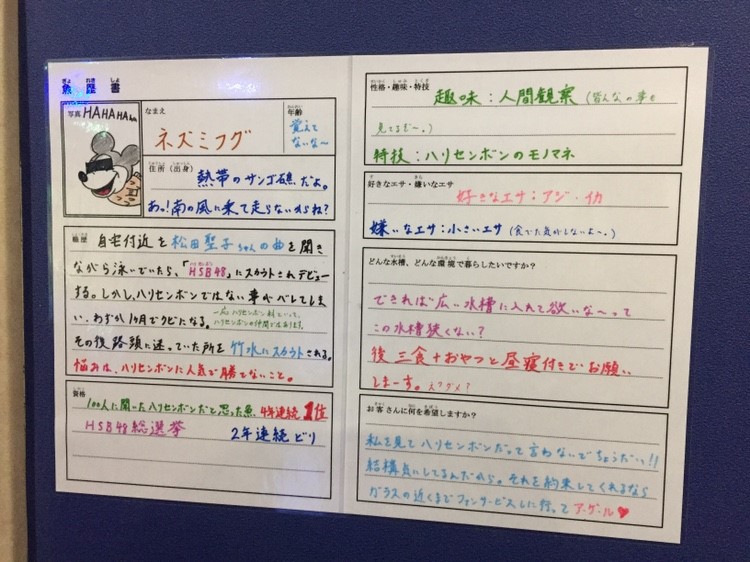 魚歴書
写真
HAHAHAha
なまえ
ネズミフグ
年齢
覚えて
ないな〜
住所(出身)
熱帯のサンゴ礁だよ。
あっ!南の風に乗て走らないからね?
職歴
自宅付近を松田聖子ちゃんの曲を聞き
ながら泳いでいたら、「HSB48」にスカウトされデビュー
する。しかし、ハリセンボンではない事がバレてしま
い、わずか1ヶ月でクビになる。
一応ハリセンボン科といって、
ハリセンボンの仲間ではあります。
その後路頭に迷っていた所を竹水にスカウトされる。
悩みは、ハリセンボンに人気で勝てないこと。
資格
100人に聞いたハリセンボンだと思った魚、4年連続1位
HSB48総選挙 2年連続ビリ
性格・趣味・特技
趣味:人間観察(皆んなの事を
見てるぞ〜。)
特技:ハリセンボンのモノマネ
好きなエサ・嫌いなエサ
好きなエサ:アジ・イカ
嫌いなエサ:小さいエサ(食べた気がしないよ〜。)
どんな水槽、どんな環境で暮らしたいですか?
できれば広い水槽に入れて欲いな〜って
この水槽狭くない?
後三食+おやつと昼寝付きでお願い
しまーす。えっダメ?
お客さんに何を希望しますか?
私を見てハリセンボンだって言わないでちょうだい!!
結構気にしてるんだから。それを約束してくれるなら
ガラスの近くまでファンサービスしに行ってア・ゲ・ル♥